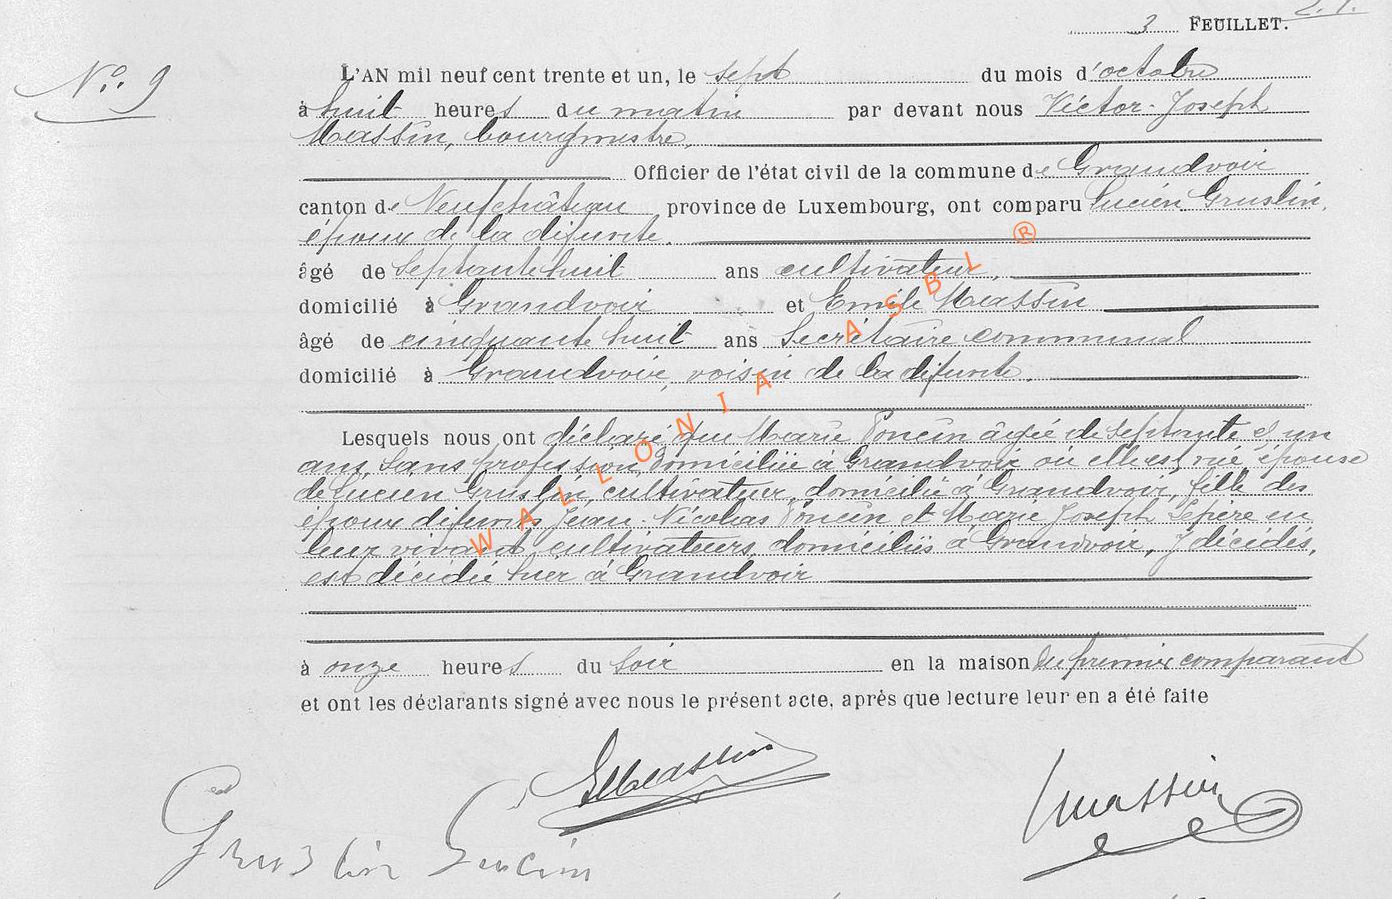 3 FEUILLET.
N° 9
L'AN mil neuf cent trente et un, le sept du mois d'octobre
à huit heures du matin par devant nous Victor-Joseph
Massin, bourgmestre,
Officier de l'état civil de la commune de Grandvoir
canton de Neufchâteau province de Luxembourg, ont comparu Lucien Gruslin,
époux de la défunte,
âgé de septante huit ans cultivateur,
domicilié à Grandvoir et Emile Massin
âgé de cinquante huit ans Secrétaire communal
domicilié à Grandvoir, voisin de la défunte.
Lesquels nous ont déclaré que Marie Poncin âgée de septante et un
ans, sans profession, domiciliée à Grandvoir où elle est née épouse
de Lucien Gruslin, cultivateur, domicilié à Grandvoir, fille des
époux défunts Jean-Nicolas Poncin et Marie Joseph Lepère en
leur vivant cultivateurs domiciliés à Grandvoir, y décédés,
est décédée hier à Grandvoir
à onze heures du soir en la maison du premier comparant
et ont les déclarants signé avec nous le présent acte, après que lecture leur en a été faite
EMassin
VMassin
Gruslin Lucien
WALLONIA ASBL ®